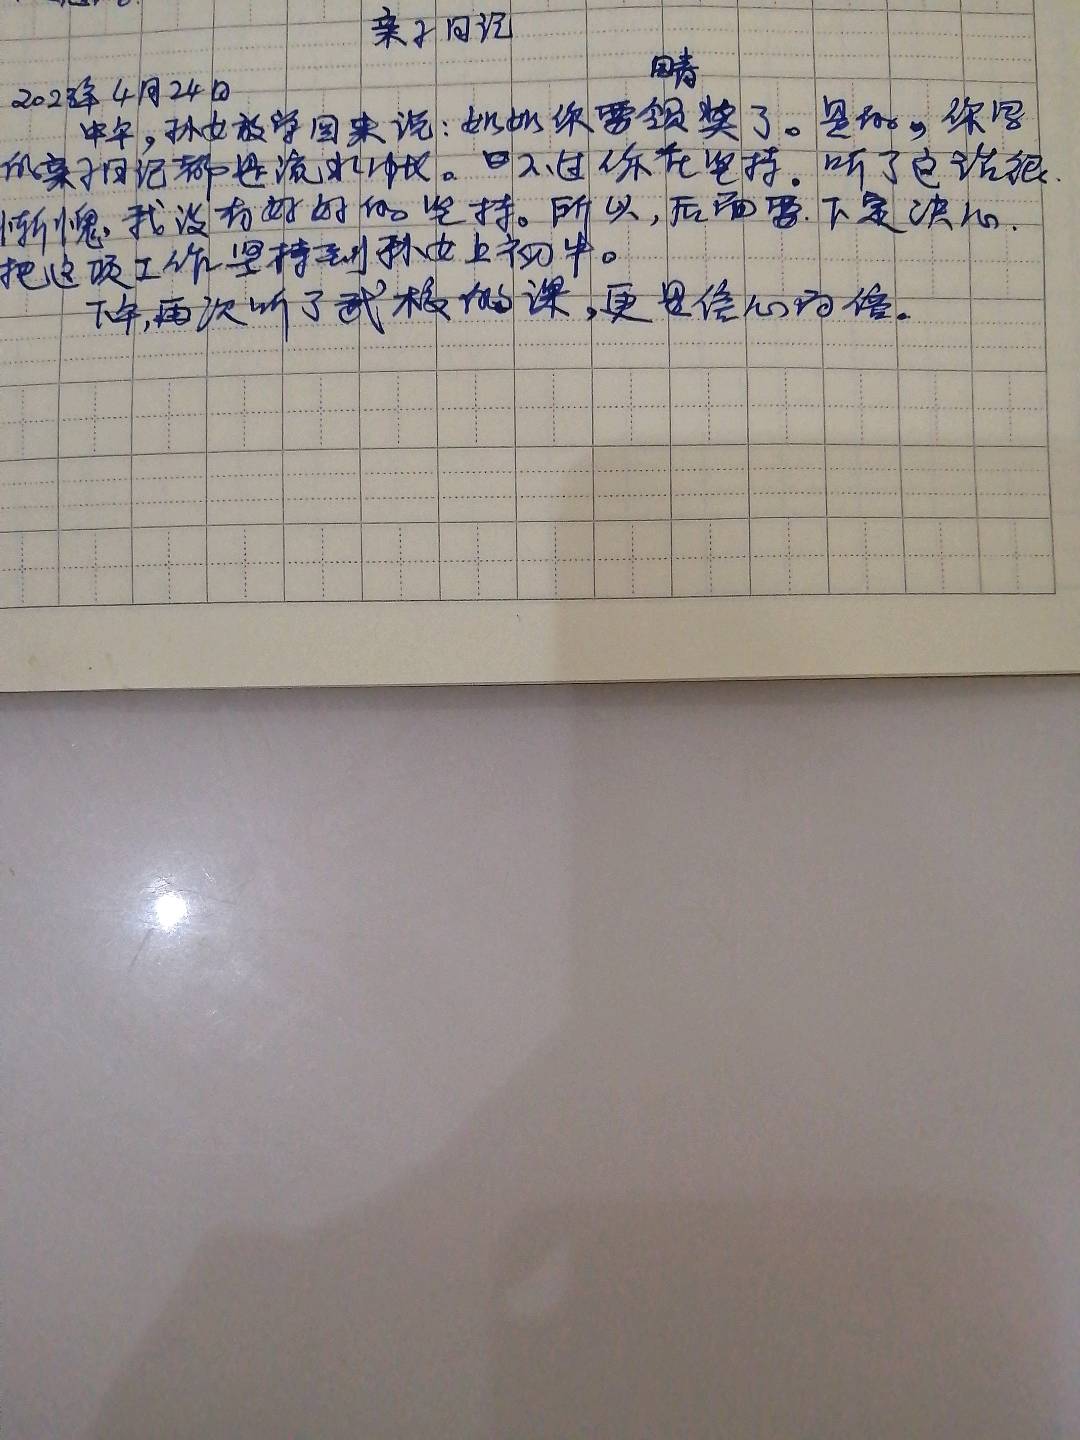 亲子日记
2023年4月24日 晴
中午,孙女放学回来说:奶奶你要领奖了。是的,你写
的亲子日记都是流水帐。不过你在坚持。听了这话很
惭愧,我没有好好的坚持。所以,后面要下定决心
把这项工作坚持到孙女上初中。
下午,再次听了武校的课,更是信心百倍。